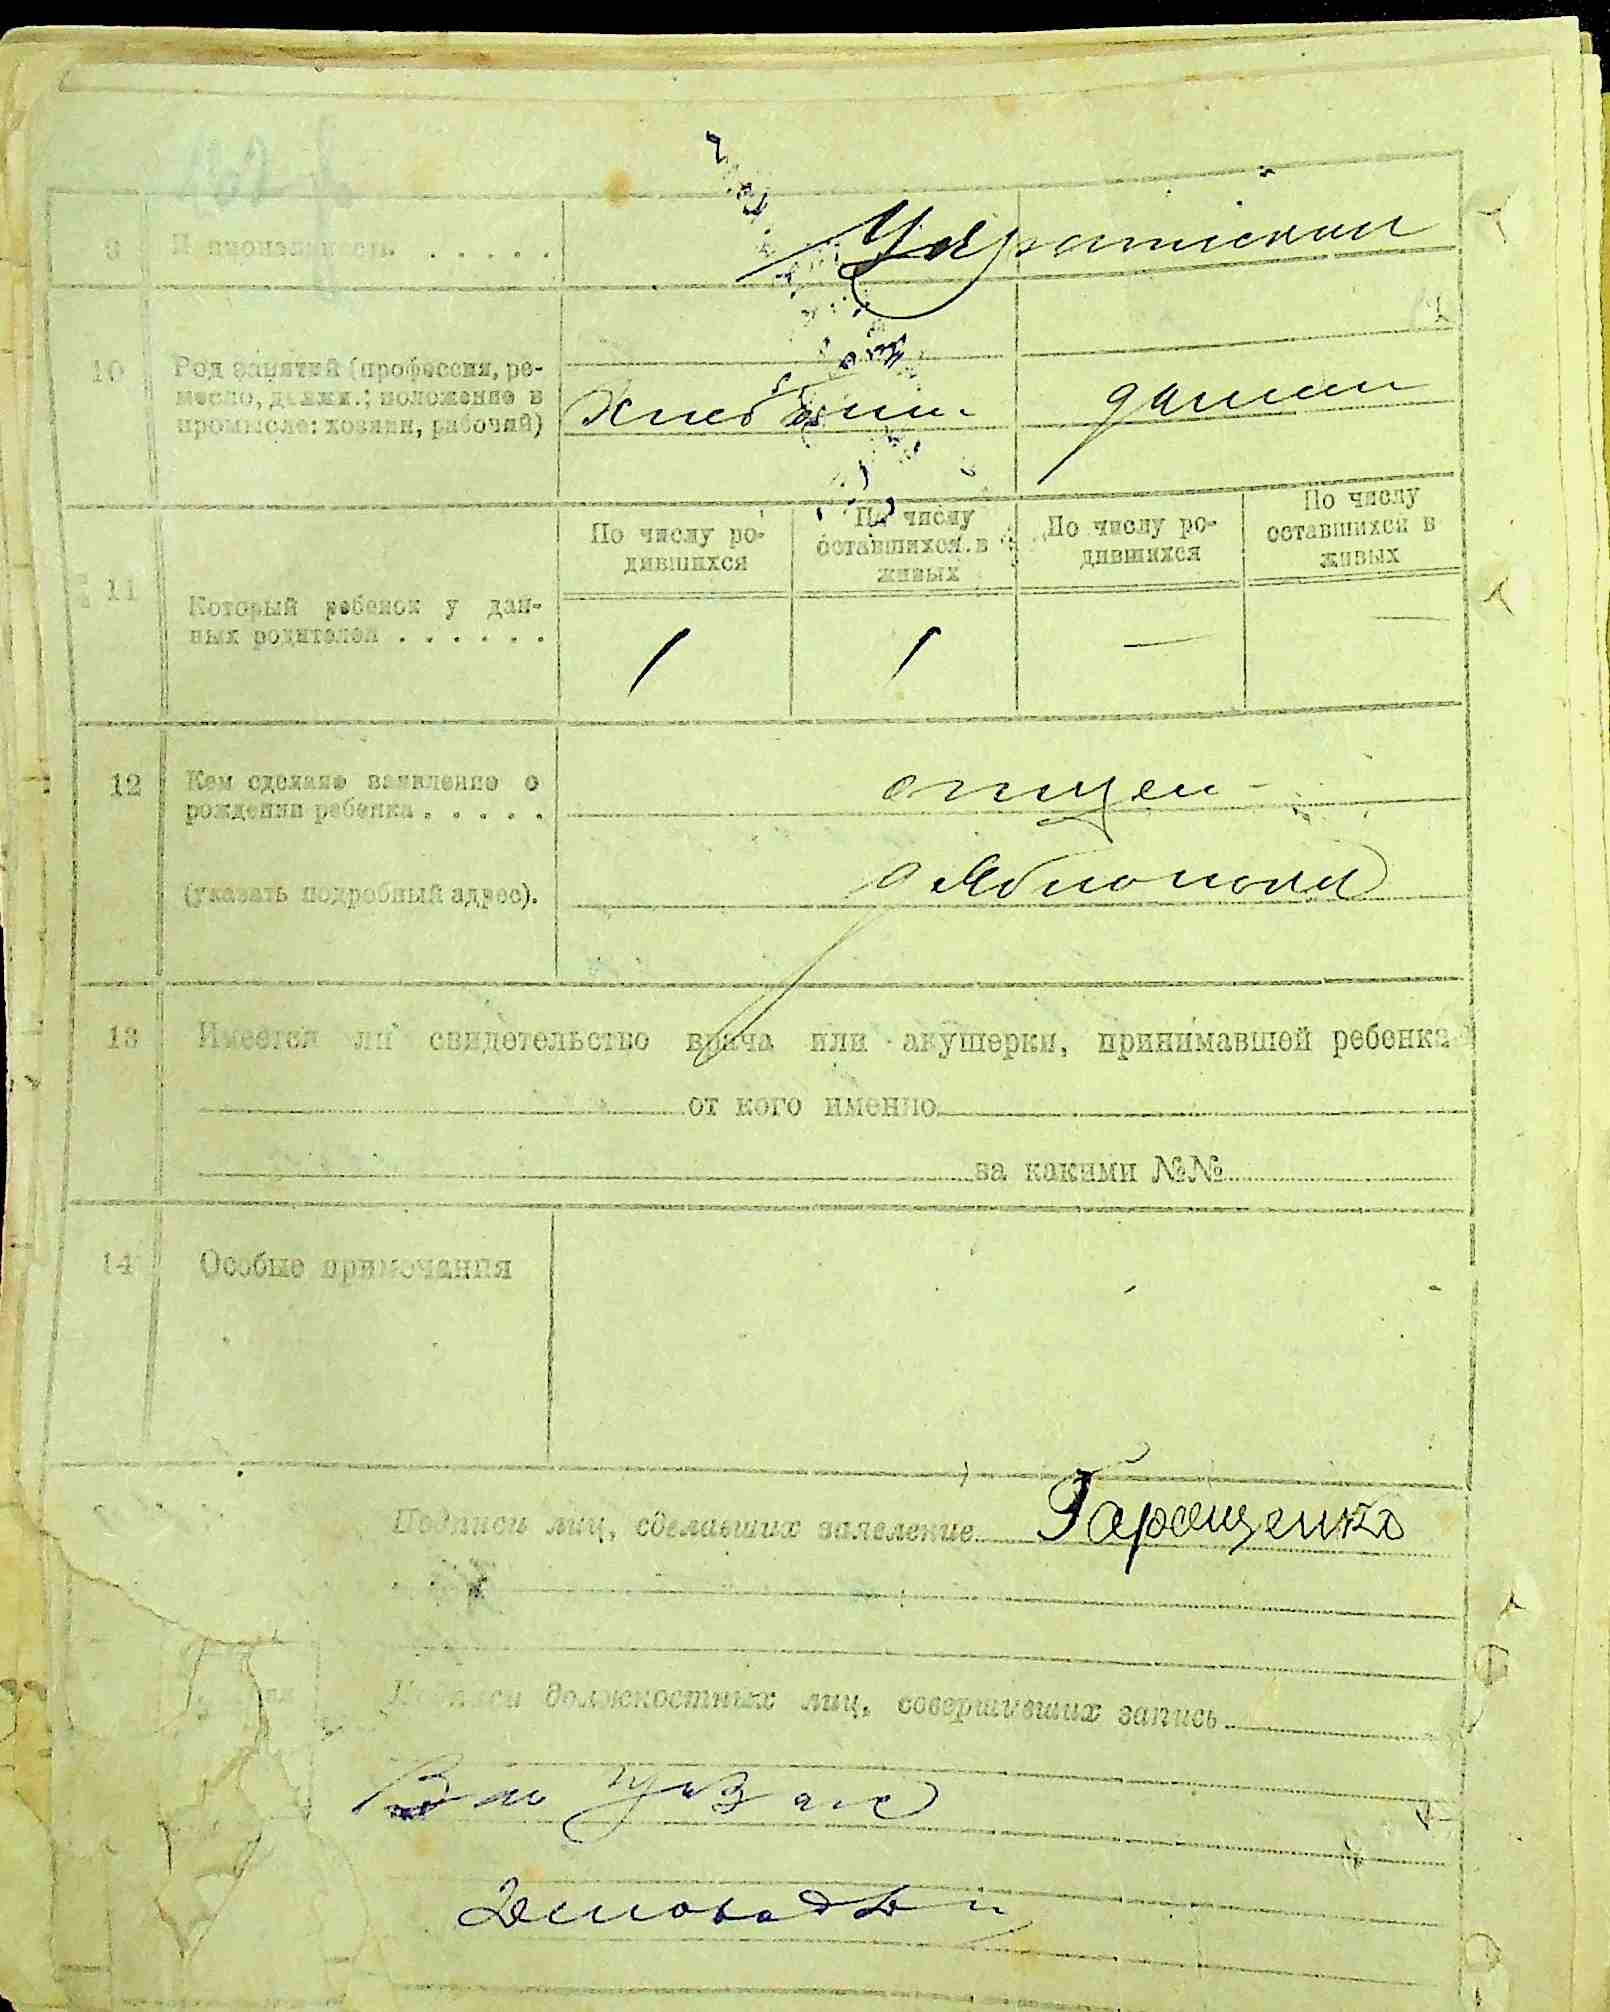 9 Национальность . . . . .
Украинский
10 Род занятий (профессия, ре-
месло, должн.; положение в
промысле: хозяин, рабочий)
Хлебопаш. домаш
11 Который ребенок у дан-
ных родителей . . . . . .
По числу ро-
дившихся
По числу
оставшихся в
живых
По числу ро-
дившихся
По числу
оставшихся в
живых
1 1 — —
12 Кем сделано заявление о
рождении ребенка . . . . .
отцем
(указать подробный адрес).
13 Имеется ли свидетельство врача или акушерки, принимавшей ребенка
от кого именно
за какими №№
14 Особые примечания
Подписи лиц, сделавших заявление Гаращенко
Подписи должностных лиц, совершивших запись